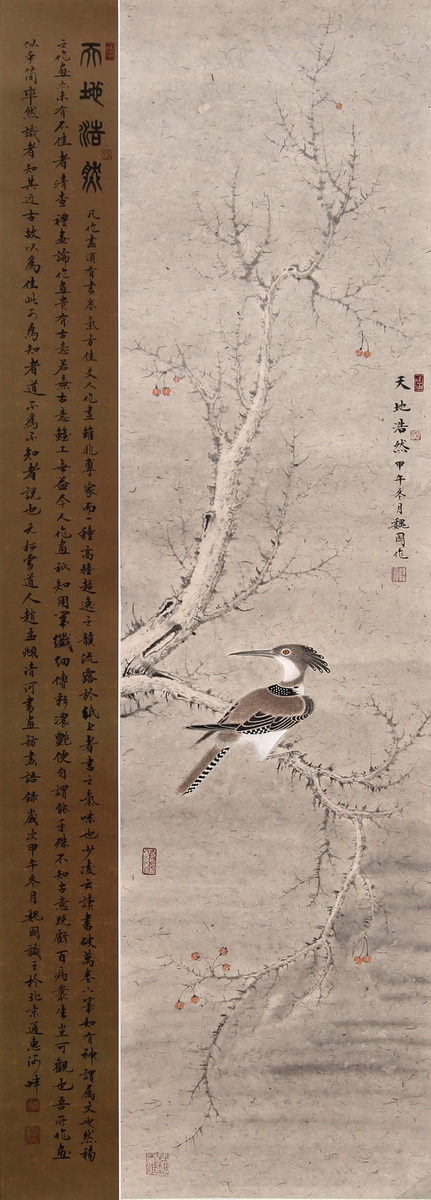 天地浩然甲午冬月魏國作
天地浩然
凡作畫須有書卷氣方佳文人作畫雖非專家而一種高雅超逸之韻流露於紙上者書之氣味也少陵云讀書破萬卷下筆如有神謂屬文也然移
之作画亦未有不佳者清查禮畫論作画貴有古意若無古意雖工無益今人作画祇知用筆纖細傅彩濃艷便自謂能手殊不知古意既虧百病叢生豈可觀也吾所作画
似乎簡率然識者知其近古故以為佳此可為知者道不為不知者說也元松雪道人趙孟頫清河書畫舫畫語錄歲次甲午冬月魏國識之於北京通惠河畔